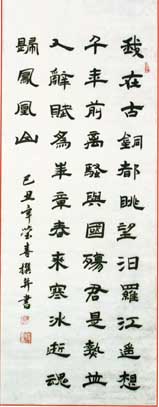 我在古銅都眺望汨羅江遙想
千年前離騷與國殤君是熱血
入辭賦為華章春來寒冰逝魂
歸鳳凰山
己丑年榮喜撰并書